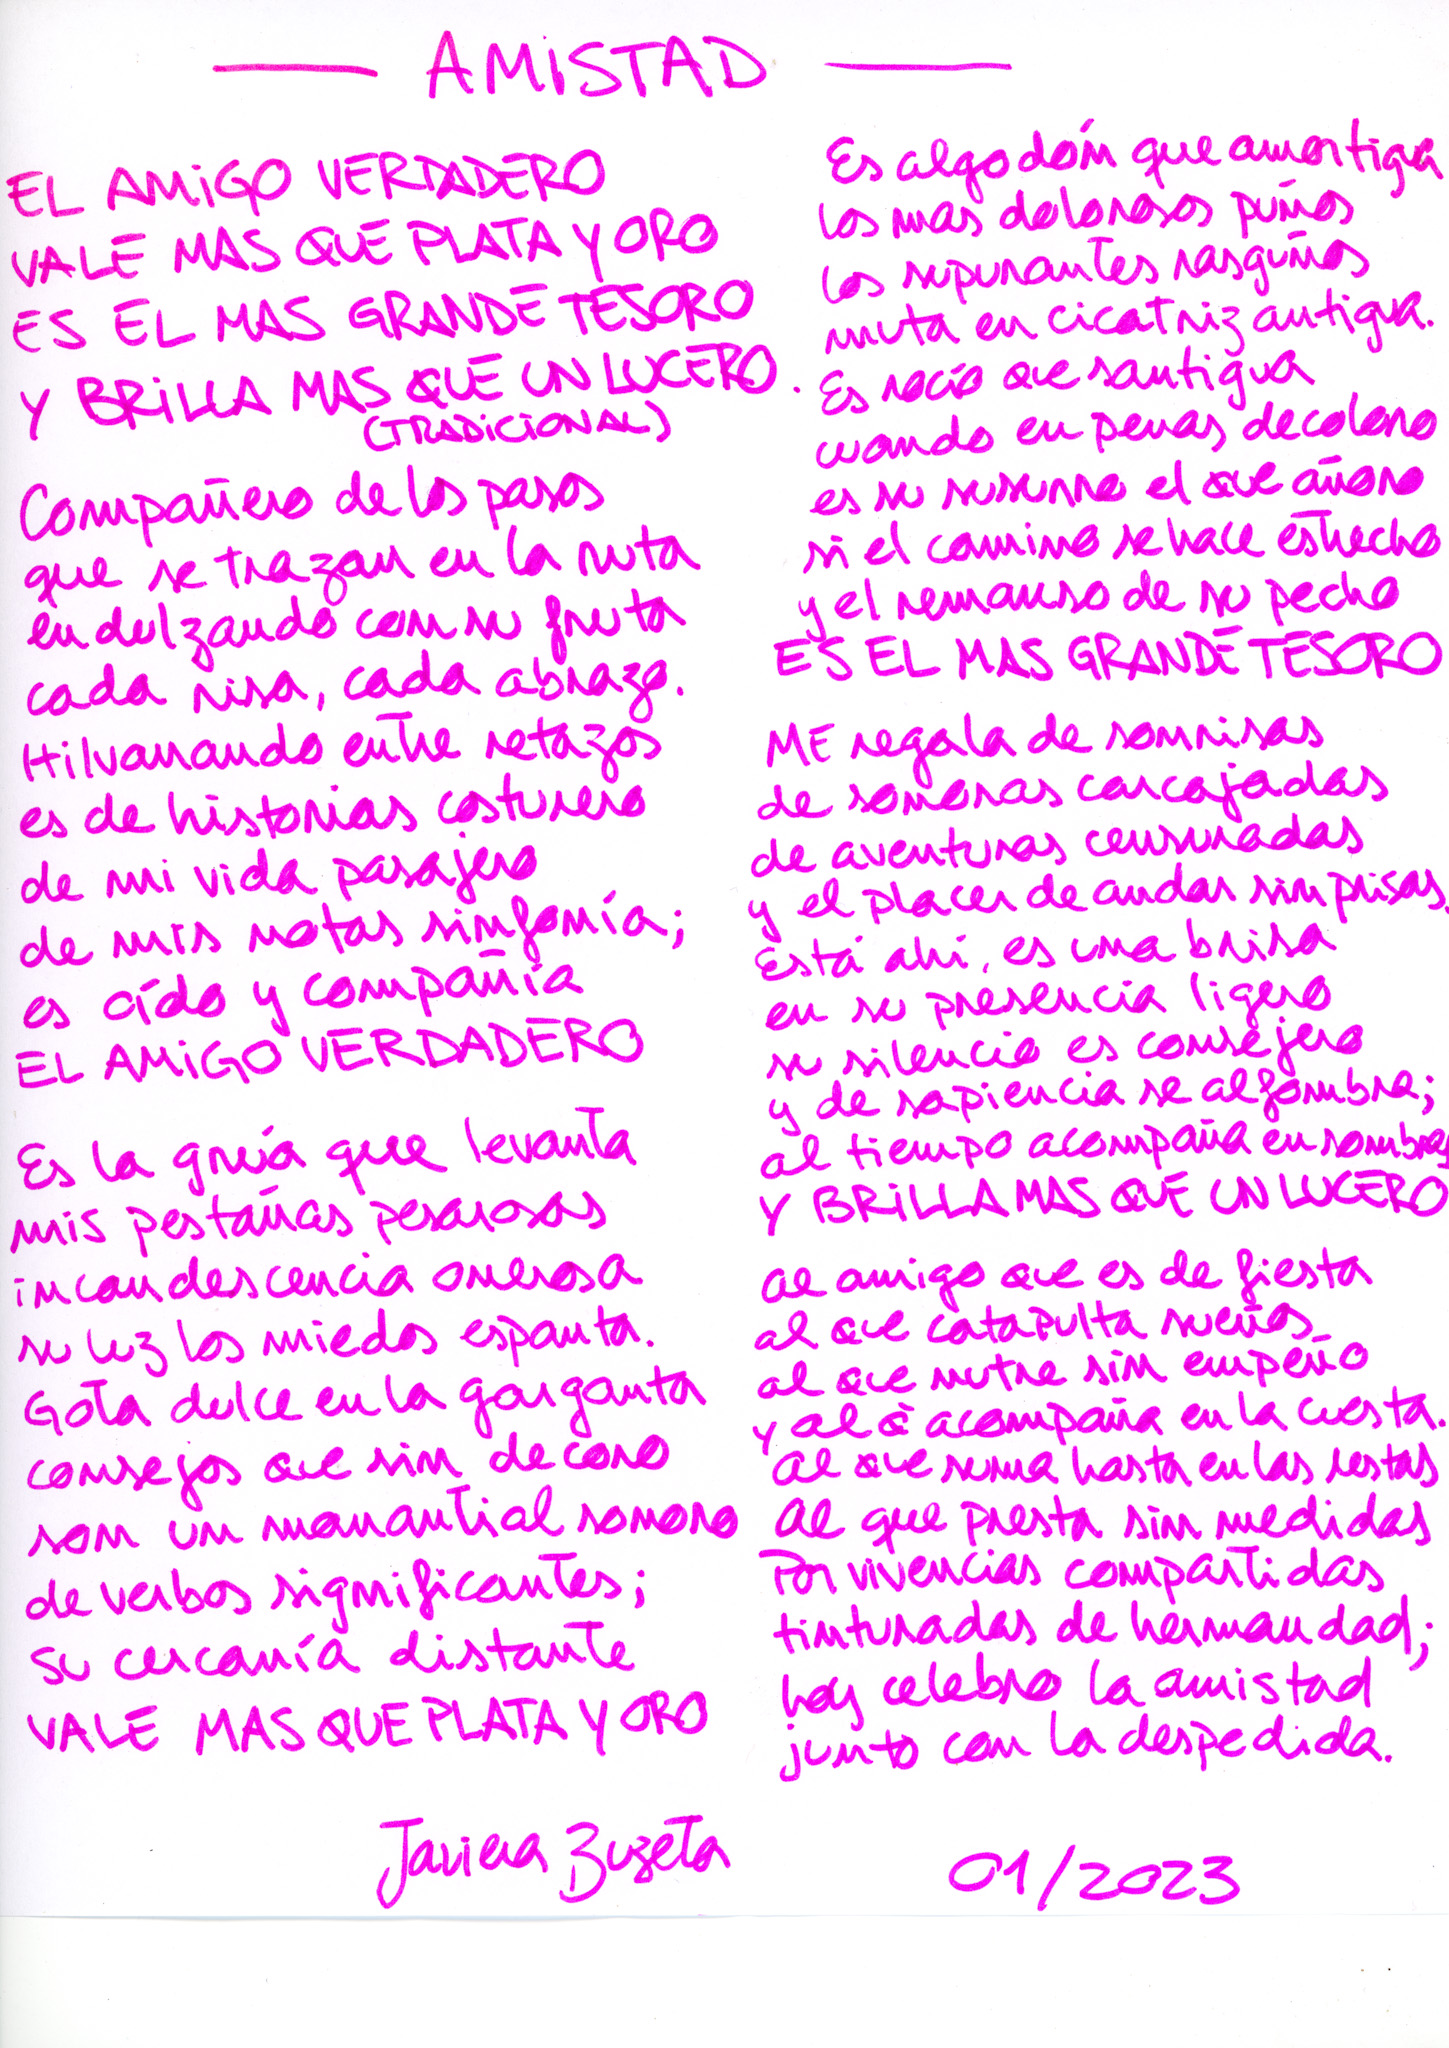 AMISTAD
EL AMIGO VERDADERO
VALE MAS QUE PLATA Y ORO
ES EL MAS GRANDE TESORO
Y BRILLA MAS QUE UN LUCERO.
(TRADICIONAL)
Compañero de los pasos
que se trazan en la ruta
endulzando con su fruta
cada risa, cada abrazo.
Hilvanando entre retazos
es de historias costurero
de mi vida pasajero
de mis notas sinfonía;
es oído y compañía
EL AMIGO VERDADERO
Es la grúa que levanta
mis pestañas pesarosas
incandescencia onerosa
su luz los miedos espanta.
Gota dulce en la garganta
consejos que sin decoro
son un manantial sonoro
de verbos significantes;
su cercanía distante
VALE MAS QUE PLATA Y ORO
Es algodón que amortigua
los mas dolorosos puños
los supurantes rasguños
muta en cicatriz antigua.
Es rocío que santigua
cuando en penas decoloro
es su susurro el que añoro
si el camino se hace estrecho
y el remanso de su pecho
ES EL MAS GRANDE TESORO
ME regala de sonrisas
de sonoras carcajadas
de aventuras censuradas
y el placer de andar sin prisas.
Está ahí, es una brisa
en su presencia ligero
su silencio es consejero
y de sapiencia se alfombra;
al tiempo acompaña en sombras
Y BRILLA MAS QUE UN LUCERO
Al amigo que es de fiesta
al que catapulta sueños
al que nutre sin empeño
y al q̃ acompaña en la cuesta.
Al que suma hasta en las restas
Al que presta sin medidas
Por vivencias compartidas
tinturadas de hermandad;
hoy celebro la amistad
junto con la despedida.
Javiera Buzeta
01/2023